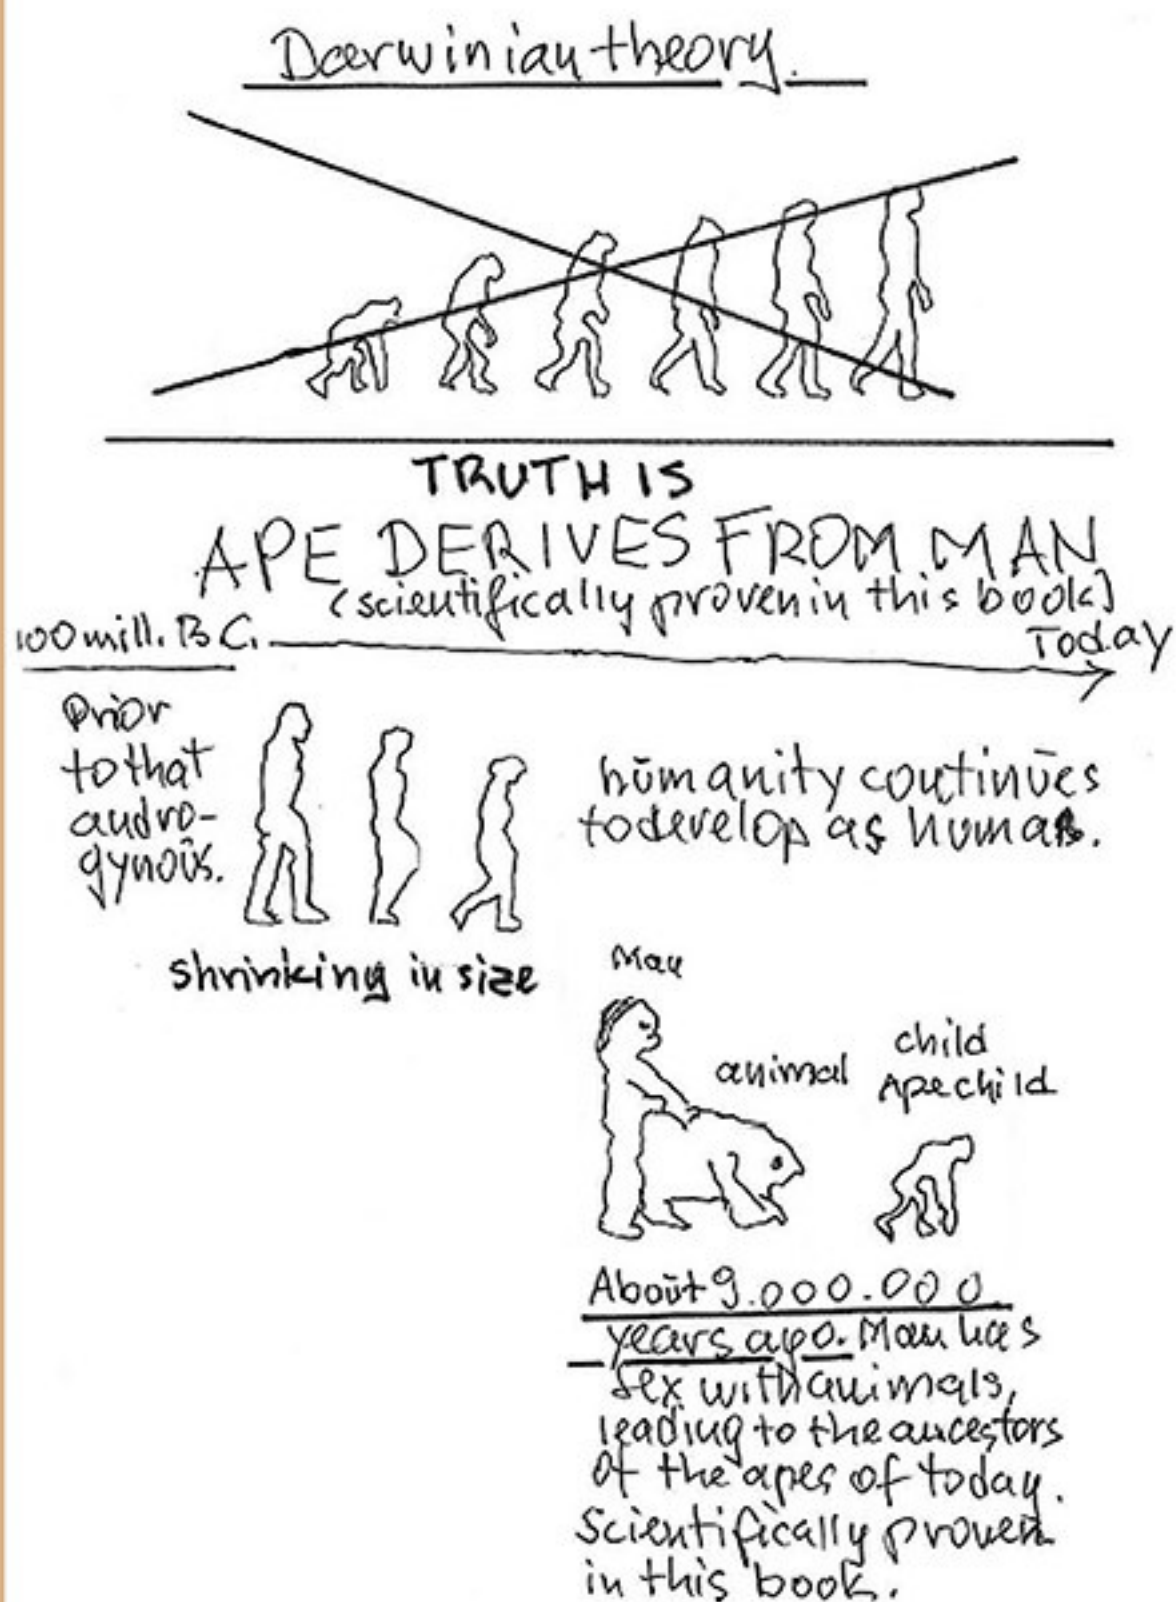 Darwinian theory.
TRUTH IS
APE DERIVES FROM MAN
(scientifically proven in this book)
100 mill. B.C.
Today
Prior
to that
andro-
gynoūs.
hūmanity continūes
to develop as humans.
shrinking in size
Man
animal
child
Ape child
Aboūt 9.000.000
years ago. Man has
sex with animals,
leading to the ancestors
of the apes of today.
Scientifically proven
in this book.